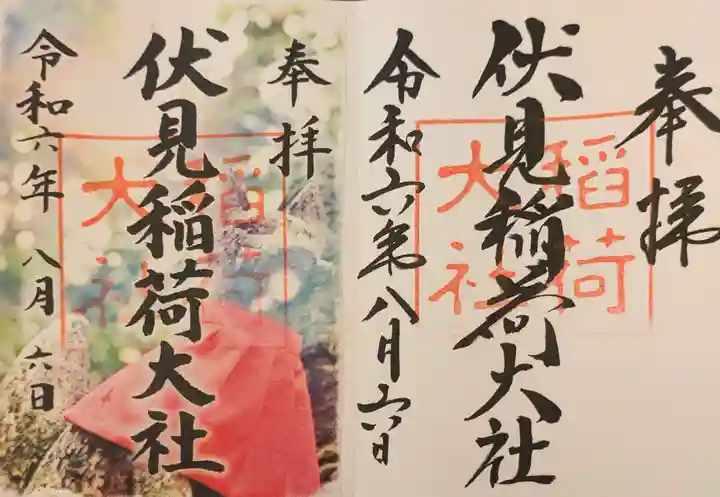 奉拝
伏見稲荷大社
令和六年八月六日
稲荷
大社
奉拝
伏見稲荷大社
令和六年 八月 六日
稲荷
大社